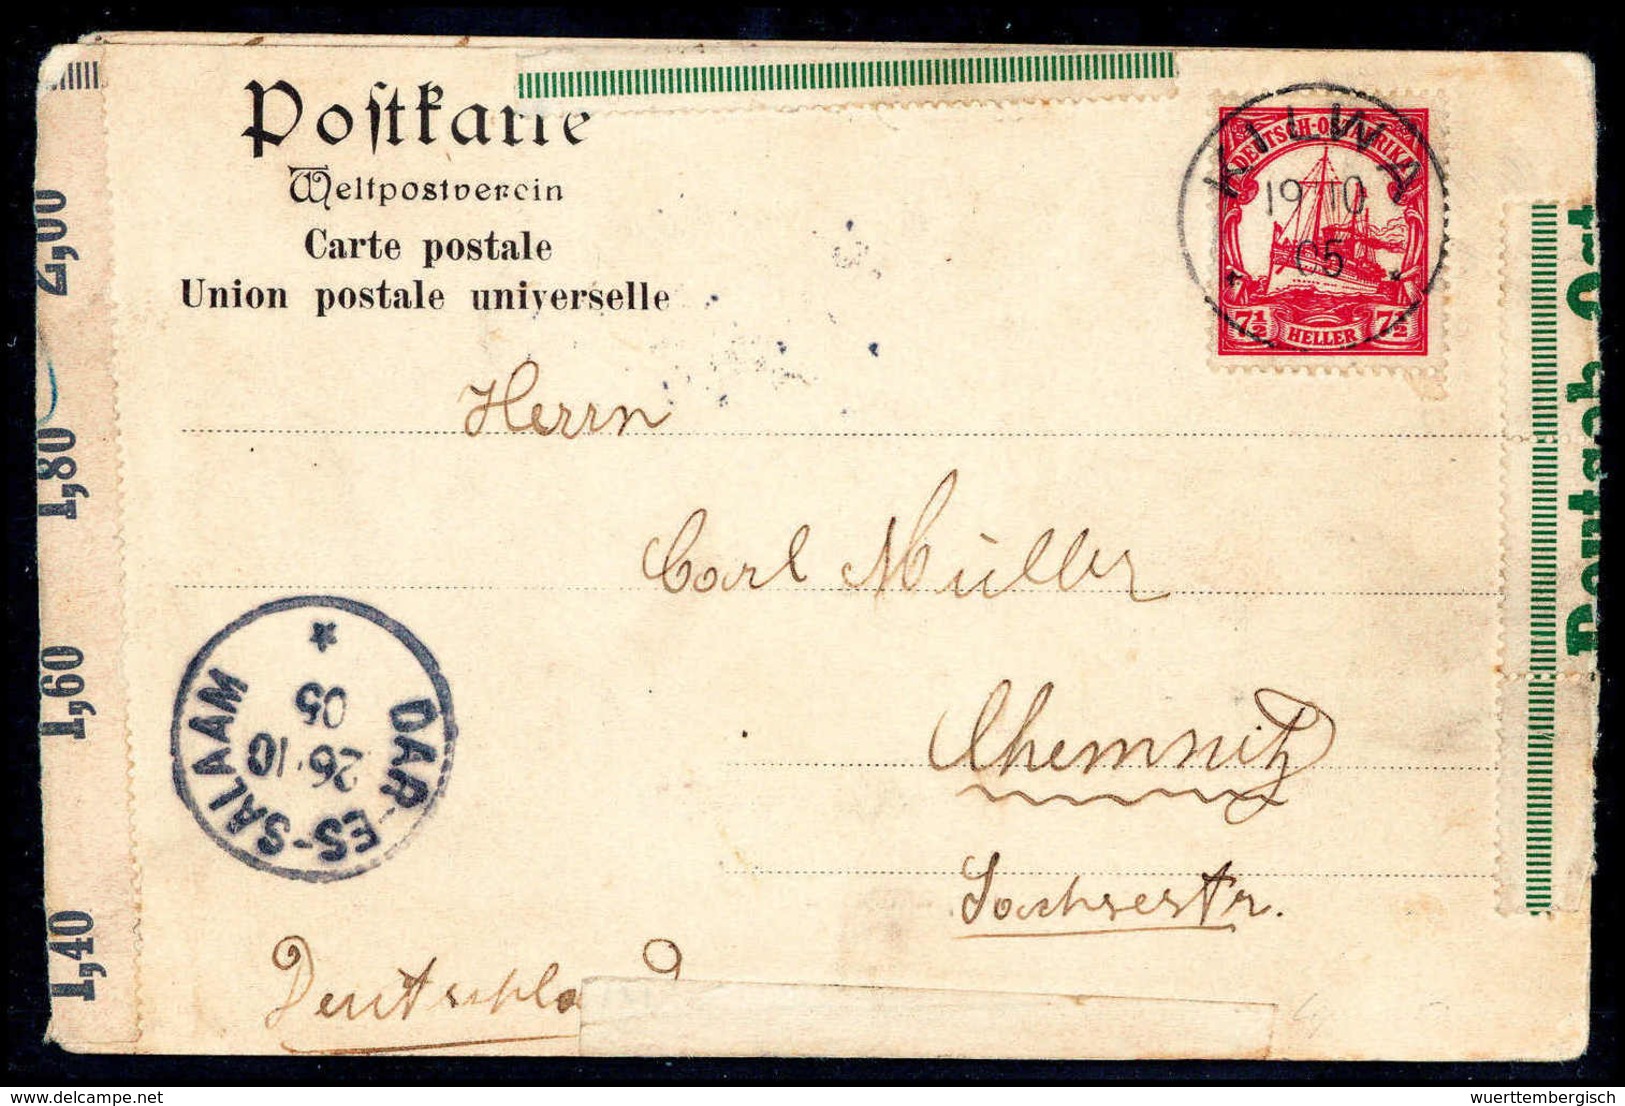 Postkarte
Weltpostverein
Carte postale
Union postale universelle
DEUTSCH-OSTAFRIKA
7½ HELLER 7½
KILWA
19 10
05
Herrn
Carl Müller
Chemnitz
Sachsestr.
Deutschla
DAR-ES-SALAAM
26.10
05
2,00
1,80
1,60
1,40
wuerttembergisch